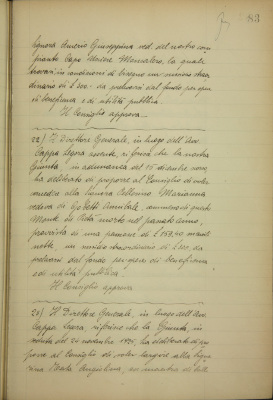 83
Signora Amero Giuseppina ved. del nostro com
pianto Capo Usciere Mercalero, la quale
trovasi in condizioni di bisogno un sussidio straor
dinario di L. 200.- da prelevarsi dal fondo per opere
di beneficenza e di utilità pubblica.
Il Consiglio approva.
22) Il Direttore Generale, in luogo dell'Avv.
Cappa Legora assente, riferisce che la nostra
Giunta in adunanza del 15 dicembre 1925
ha deliberato di proporre al Consiglio di voler
concedere alla Signora Marianna
vedova di Gobetti Annibale, commesso di questo
Monte di Pietà morto nel passato anno,
provvista di una pensione di L. 158,40 mensili
nette, un sussidio straordinario di L. 200, da
prelevarsi dal fondo per opere di beneficenza
e di utilità pubblica.
Il Consiglio approva
23) Il Direttore Generale, in luogo dell'Avv.
Cappa Legora, riferisce che la Giunta, in
seduta del 24 novembre 1925, ha deliberato di pro
porre al Consiglio di voler elargire alla Signo
rina Angiolina, ex maestra di